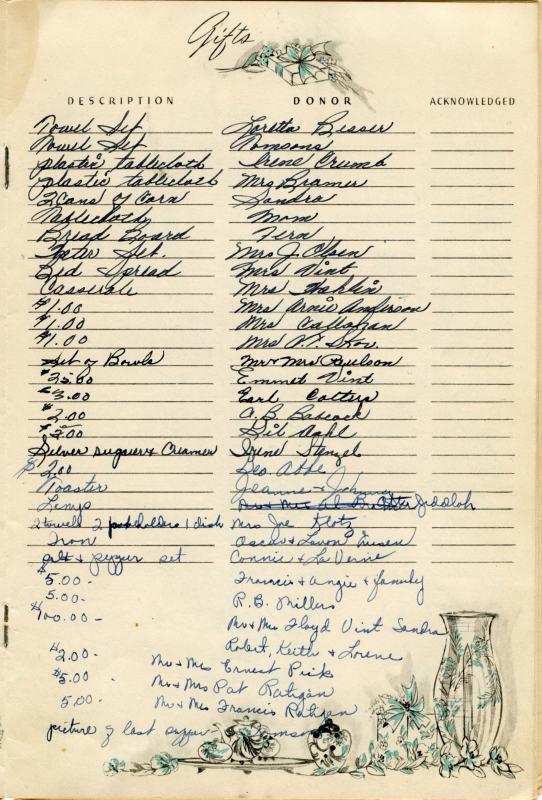 Gifts
DESCRIPTION DONOR ACKNOWLEDGED
Towel Set Loretta Besser
Towel Set Tomsons
plastic tablecloth Irene Crumb
plastic tablecloth Mrs Bramer
2 Cans of Corn Sandra
Tablecloth Mom
Bread Board Fern
Set. Mrs J. Olsen
Bed Spread Mrs Vint
Casserole Mrs
$1.00 Mrs Arnie Anderson
$1.00 Mrs Callahan
$1.00 Mrs
Set of Bowls Mr & Mrs Paulson
$25.00 Emmet Vint
$3.00 Earl Cotters
$2.00 A.B. Babcock
$2.00 Dahl
Silver sugar & Creamer Irene Stengel
$2.00 Geo. Abbe
Toaster Jeanne & Johnny
Lamp Otto
2 towels 2 potholders 1 dish Mrs Joe Klotz
Iron Oscar & Lavon
salt & pepper set Connie & LaVerne
$5.00- Francis & Angie & family
5.00- R.B. Millers
$100.00- Mr & Mrs Floyd Vint Sandra
Robert, Keith & Lorene
$2.00- Mr & Mrs Ernest Pick
$5.00- Mr & Mrs Pat Ratigan
5.00- Mr & Mrs Francis Ratigan
picture of last supper Tomson